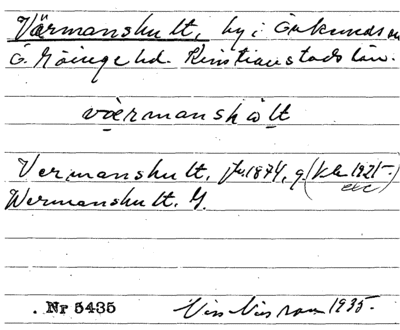 Värmanshult, by i Örkened sn
Ö. Göinge hd. Kristianstads län.
värmanshält
Vermanshult, 1874, g. (Kla 1925 etc)
Wermanshult. G.
Nr 5435 1935.